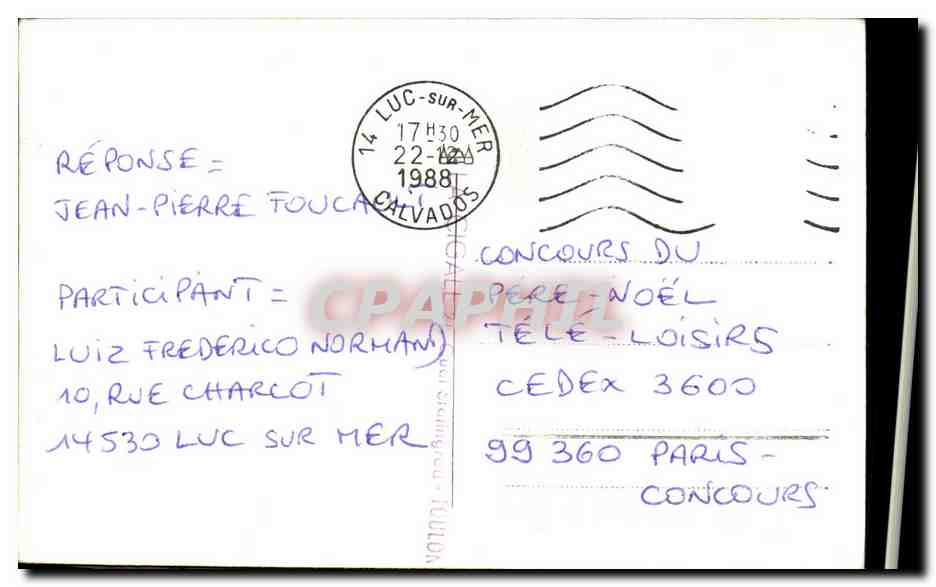 14 LUC-SUR-MER
17H30
22-12
1988
CALVADOS
RÉPONSE =
JEAN-PIERRE FOUCAULT
PARTICIPANT =
LUIZ FREDERICO NORMAND
10, RUE CHARCOT
14530 LUC SUR MER
CONCOURS DU
PÈRE-NOËL
TÉLÉ-LOISIRS
CEDEX 3600
99 360 PARIS-
CONCOURS
CPAPHIL
TOULON